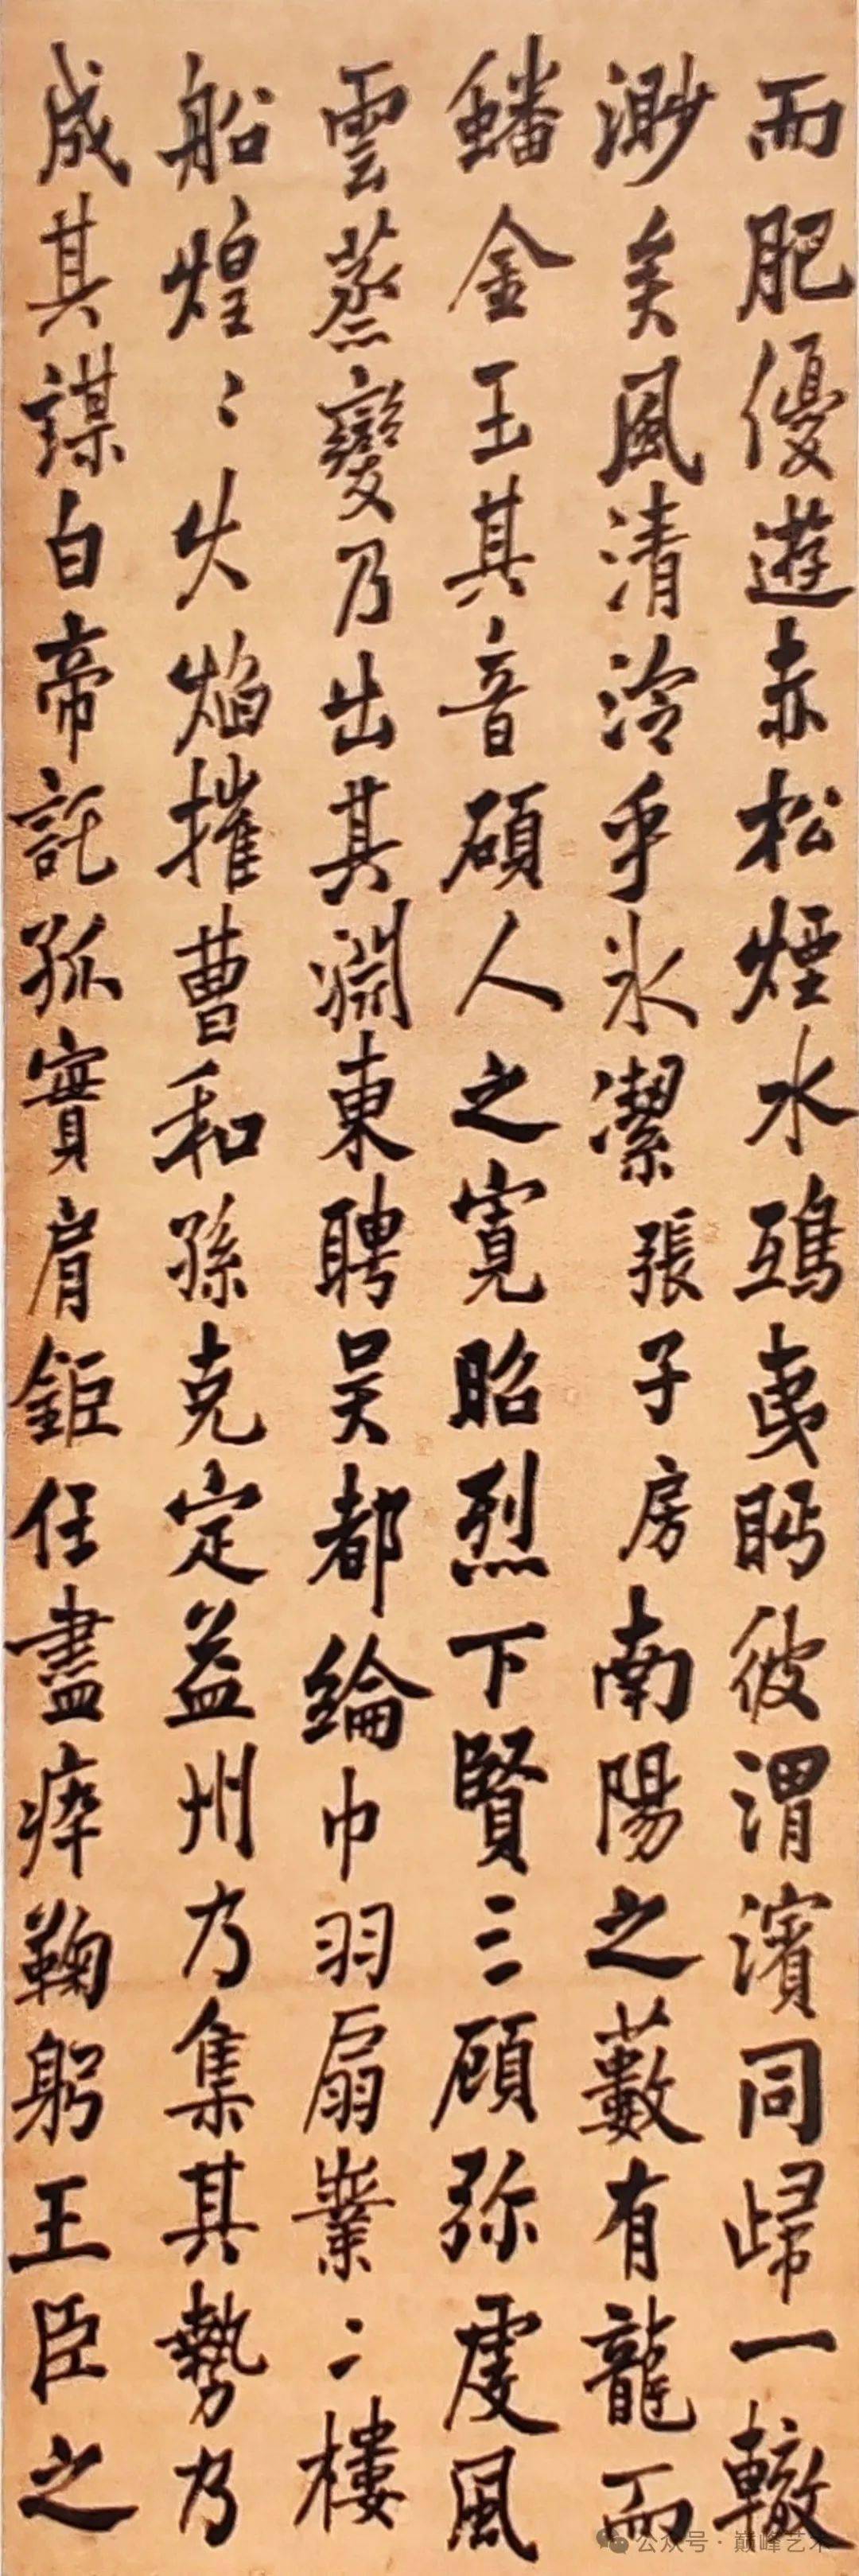 而肥優遊赤松煙水鴟夷眄彼渭濱同歸一轍
渺矣風清泠乎氷潔張子房南陽之藪有龍而
蟠金玉其音碩人之寬昭烈下賢三顧弥虔風
雲蒸變乃出其淵東聘吴都綸巾羽扇業〻樓
船煌〻火焰摧曹和孫克定益州乃集其勢乃
成其謀白帝託孤實肩鉅任盡瘁鞠躬王臣之
公众号·巅峰艺术